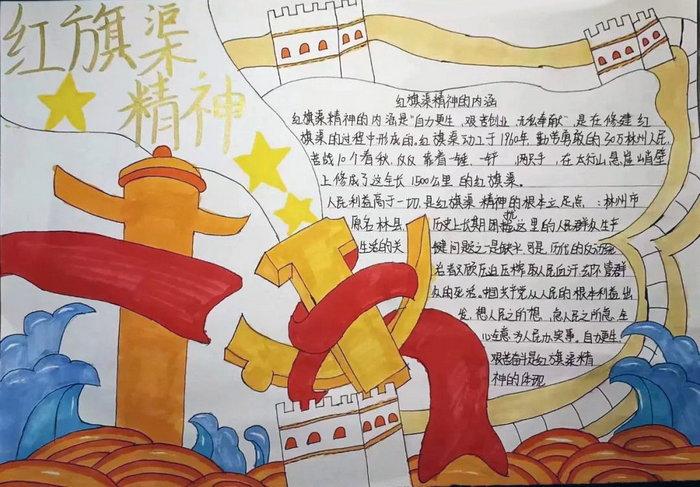 红旗渠
精神
红旗渠精神的内涵
红旗渠精神的内涵是"自力更生、艰苦创业、无私奉献",是在修建红
旗渠的过程中形成的。红旗渠动工于1960年,勤劳勇敢的30万林州人民,
苦战10个春秋,仅仅靠着一锤、一钎、两只手,在太行山悬崖峭壁
上修成了这全长1500公里的红旗渠。
人民利益高于一切,是红旗渠精神的根本立足点:林州市
原名林县,历史上长期困扰这里的人民群众生产
生活的关键问题之一是缺水,可是,历代的反动
压榨人民血汗,不管群
众的死活。中国共产党从人民的根本利益出
发,想人民之所想,急人民之所急,全
心全意,为人民办实事,自力更生,
艰苦奋斗是红旗渠精
神的体现